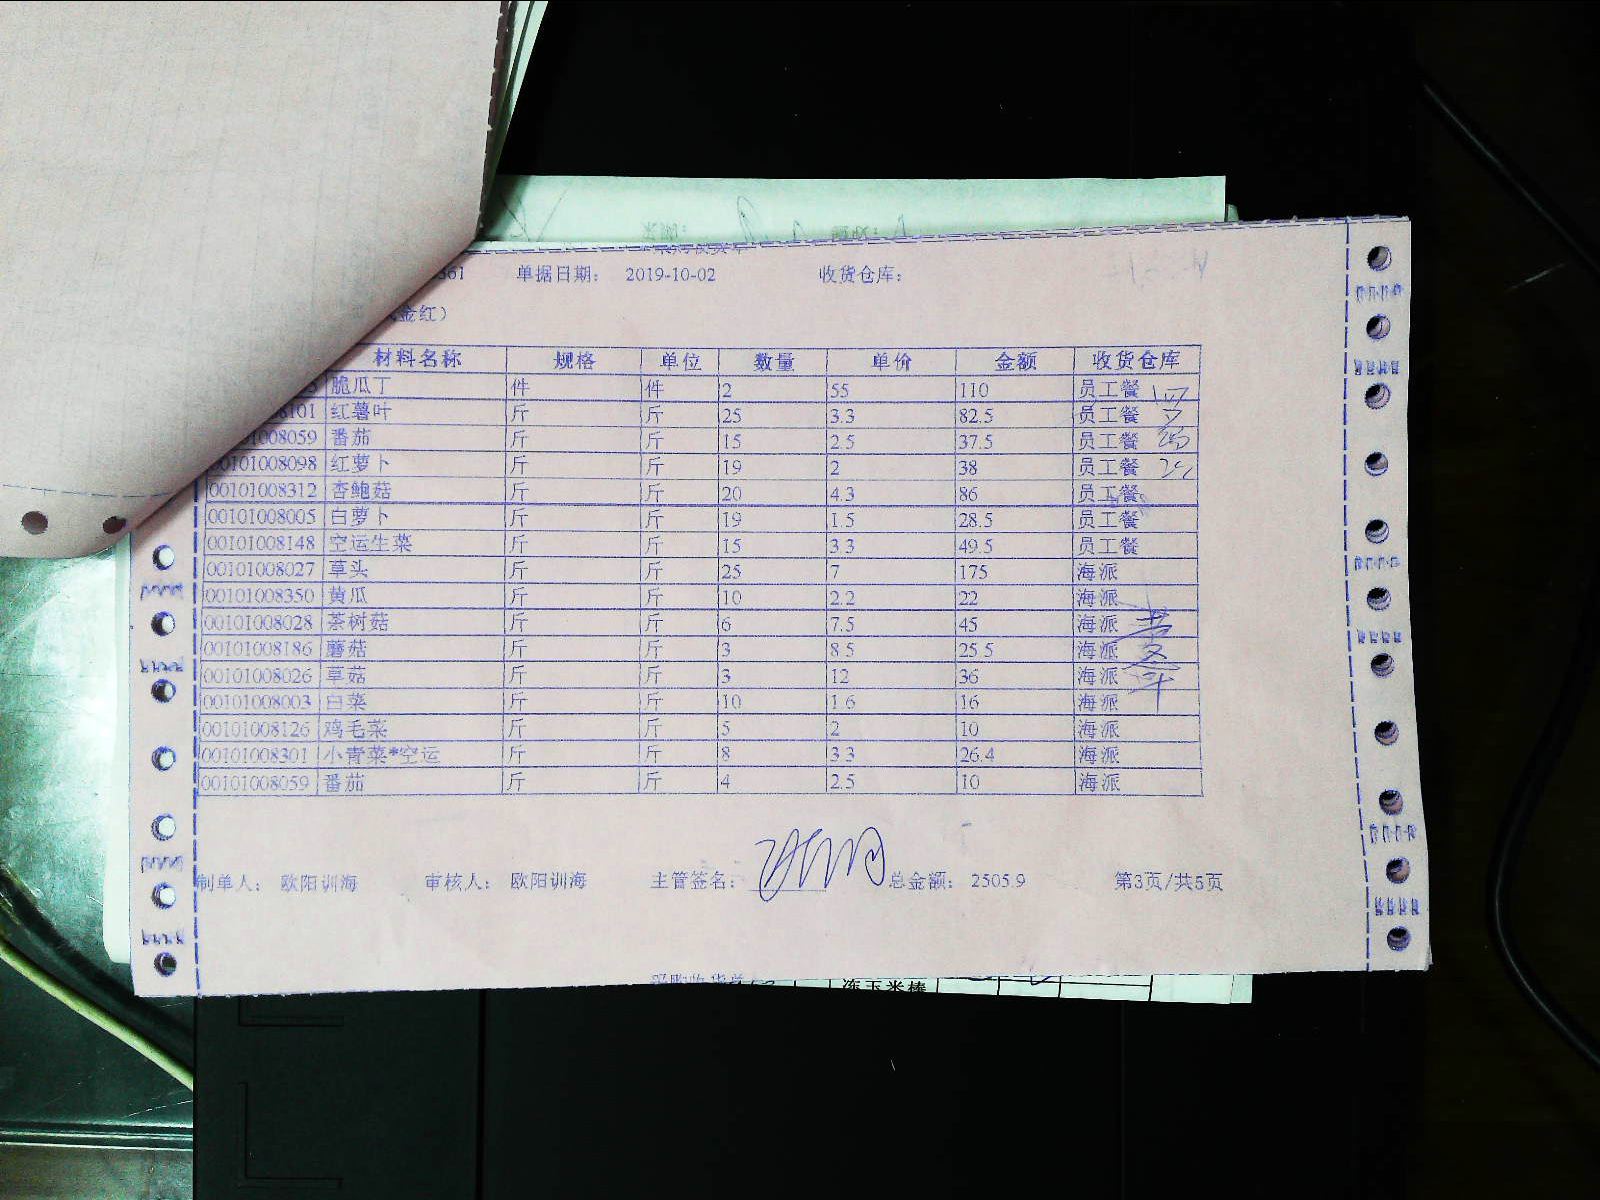 361 单据日期: 2019-10-02 收货仓库:
金红）
材料名称 规格 单位 数量 单价 金额 收货仓库
脆瓜丁 件 件 2 55 110 员工餐
8101 红薯叶 斤 斤 25 3.3 82.5 员工餐
0101008059 番茄 斤 斤 15 2.5 37.5 员工餐
00101008098 红萝卜 斤 斤 19 2 38 员工餐
00101008312 杏鲍菇 斤 斤 20 4.3 86 员工餐
00101008005 白萝卜 斤 斤 19 1.5 28.5 员工餐
00101008148 空运生菜 斤 斤 15 3.3 49.5 员工餐
00101008027 草头 斤 斤 25 7 175 海派
00101008350 黄瓜 斤 斤 10 2.2 22 海派
00101008028 茶树菇 斤 斤 6 7.5 45 海派
00101008186 蘑菇 斤 斤 3 8.5 25.5 海派
00101008026 草菇 斤 斤 3 12 36 海派
00101008003 白菜 斤 斤 10 1.6 16 海派
00101008126 鸡毛菜 斤 斤 5 2 10 海派
00101008301 小青菜*空运 斤 斤 8 3.3 26.4 海派
00101008059 番茄 斤 斤 4 2.5 10 海派
制单人: 欧阳训海 审核人: 欧阳训海 主管签名: 总金额: 2505.9 第3页/共5页
冻玉米棒